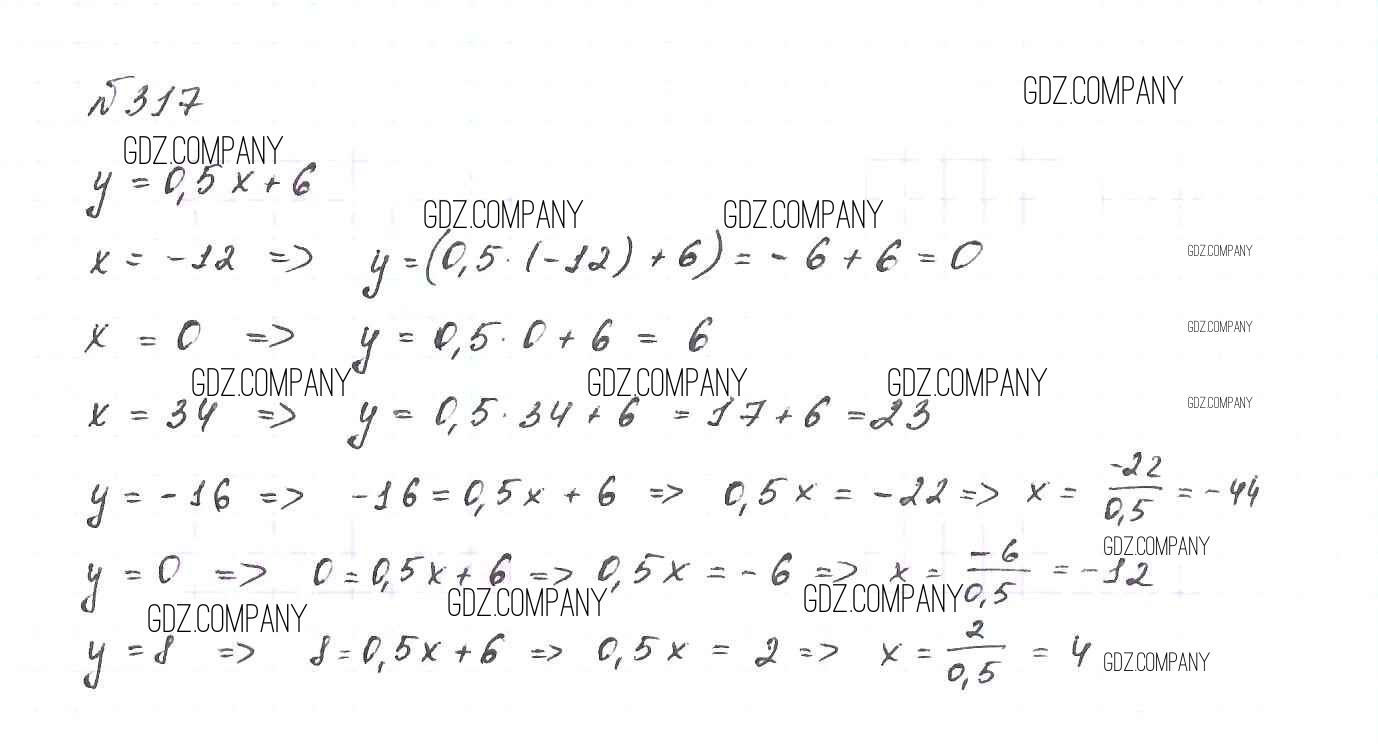 №317
GDZ.COMPANY
GDZ.COMPANY
y = 0,5x + 6
GDZ.COMPANY GDZ.COMPANY
x = -12 => y = (0,5 · (-12) + 6) = -6 + 6 = 0
GDZ.COMPANY
x = 0 => y = 0,5 · 0 + 6 = 6
GDZ.COMPANY
GDZ.COMPANY GDZ.COMPANY GDZ.COMPANY
x = 34 => y = 0,5 · 34 + 6 = 17 + 6 = 23
GDZ.COMPANY
y = -16 => -16 = 0,5x + 6 => 0,5x = -22 => x = -22/0,5 = -44
GDZ.COMPANY
y = 0 => 0 = 0,5x + 6 => 0,5x = -6 => x = -6/0,5 = -12
GDZ.COMPANY GDZ.COMPANY GDZ.COMPANY
y = 8 => 8 = 0,5x + 6 => 0,5x = 2 => x = 2/0,5 = 4
GDZ.COMPANY